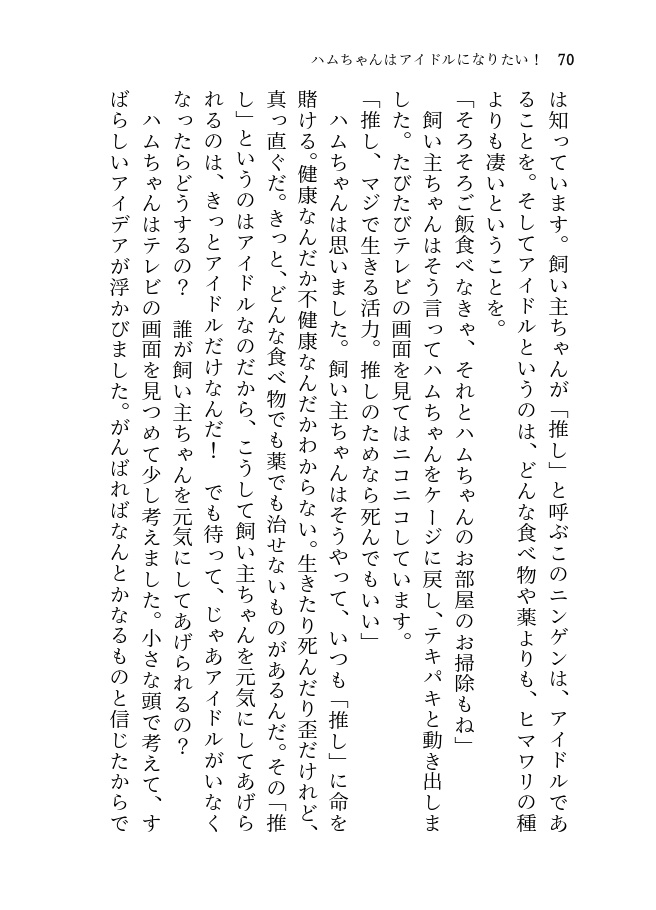 ハムちゃんはアイドルになりたい！ 70
は知っています。飼い主ちゃんが「推し」と呼ぶこのニンゲンは、アイドルであ
ることを。そしてアイドルというのは、どんな食べ物や薬よりも、ヒマワリの種
よりも凄いということを。
「そろそろご飯食べなきゃ、それとハムちゃんのお部屋のお掃除もね」
　飼い主ちゃんはそう言ってハムちゃんをケージに戻し、テキパキと動き出しま
した。たびたびテレビの画面を見てはニコニコしています。
「推し、マジで生きる活力。推しのためなら死んでもいい」
　ハムちゃんは思いました。飼い主ちゃんはそうやって、いつも「推し」に命を
賭ける。健康なんだか不健康なんだかわからない。生きたり死んだり歪だけれど、
真っ直ぐだ。きっと、どんな食べ物でも薬でも治せないものがあるんだ。その「推
し」というのはアイドルなのだから、こうして飼い主ちゃんを元気にしてあげら
れるのは、きっとアイドルだけなんだ！　でも待って、じゃあアイドルがいなく
なったらどうするの？　誰が飼い主ちゃんを元気にしてあげられるの？
　ハムちゃんはテレビの画面を見つめて少し考えました。小さな頭で考えて、す
ばらしいアイデアが浮かびました。がんばればなんとかなるものと信じたからで